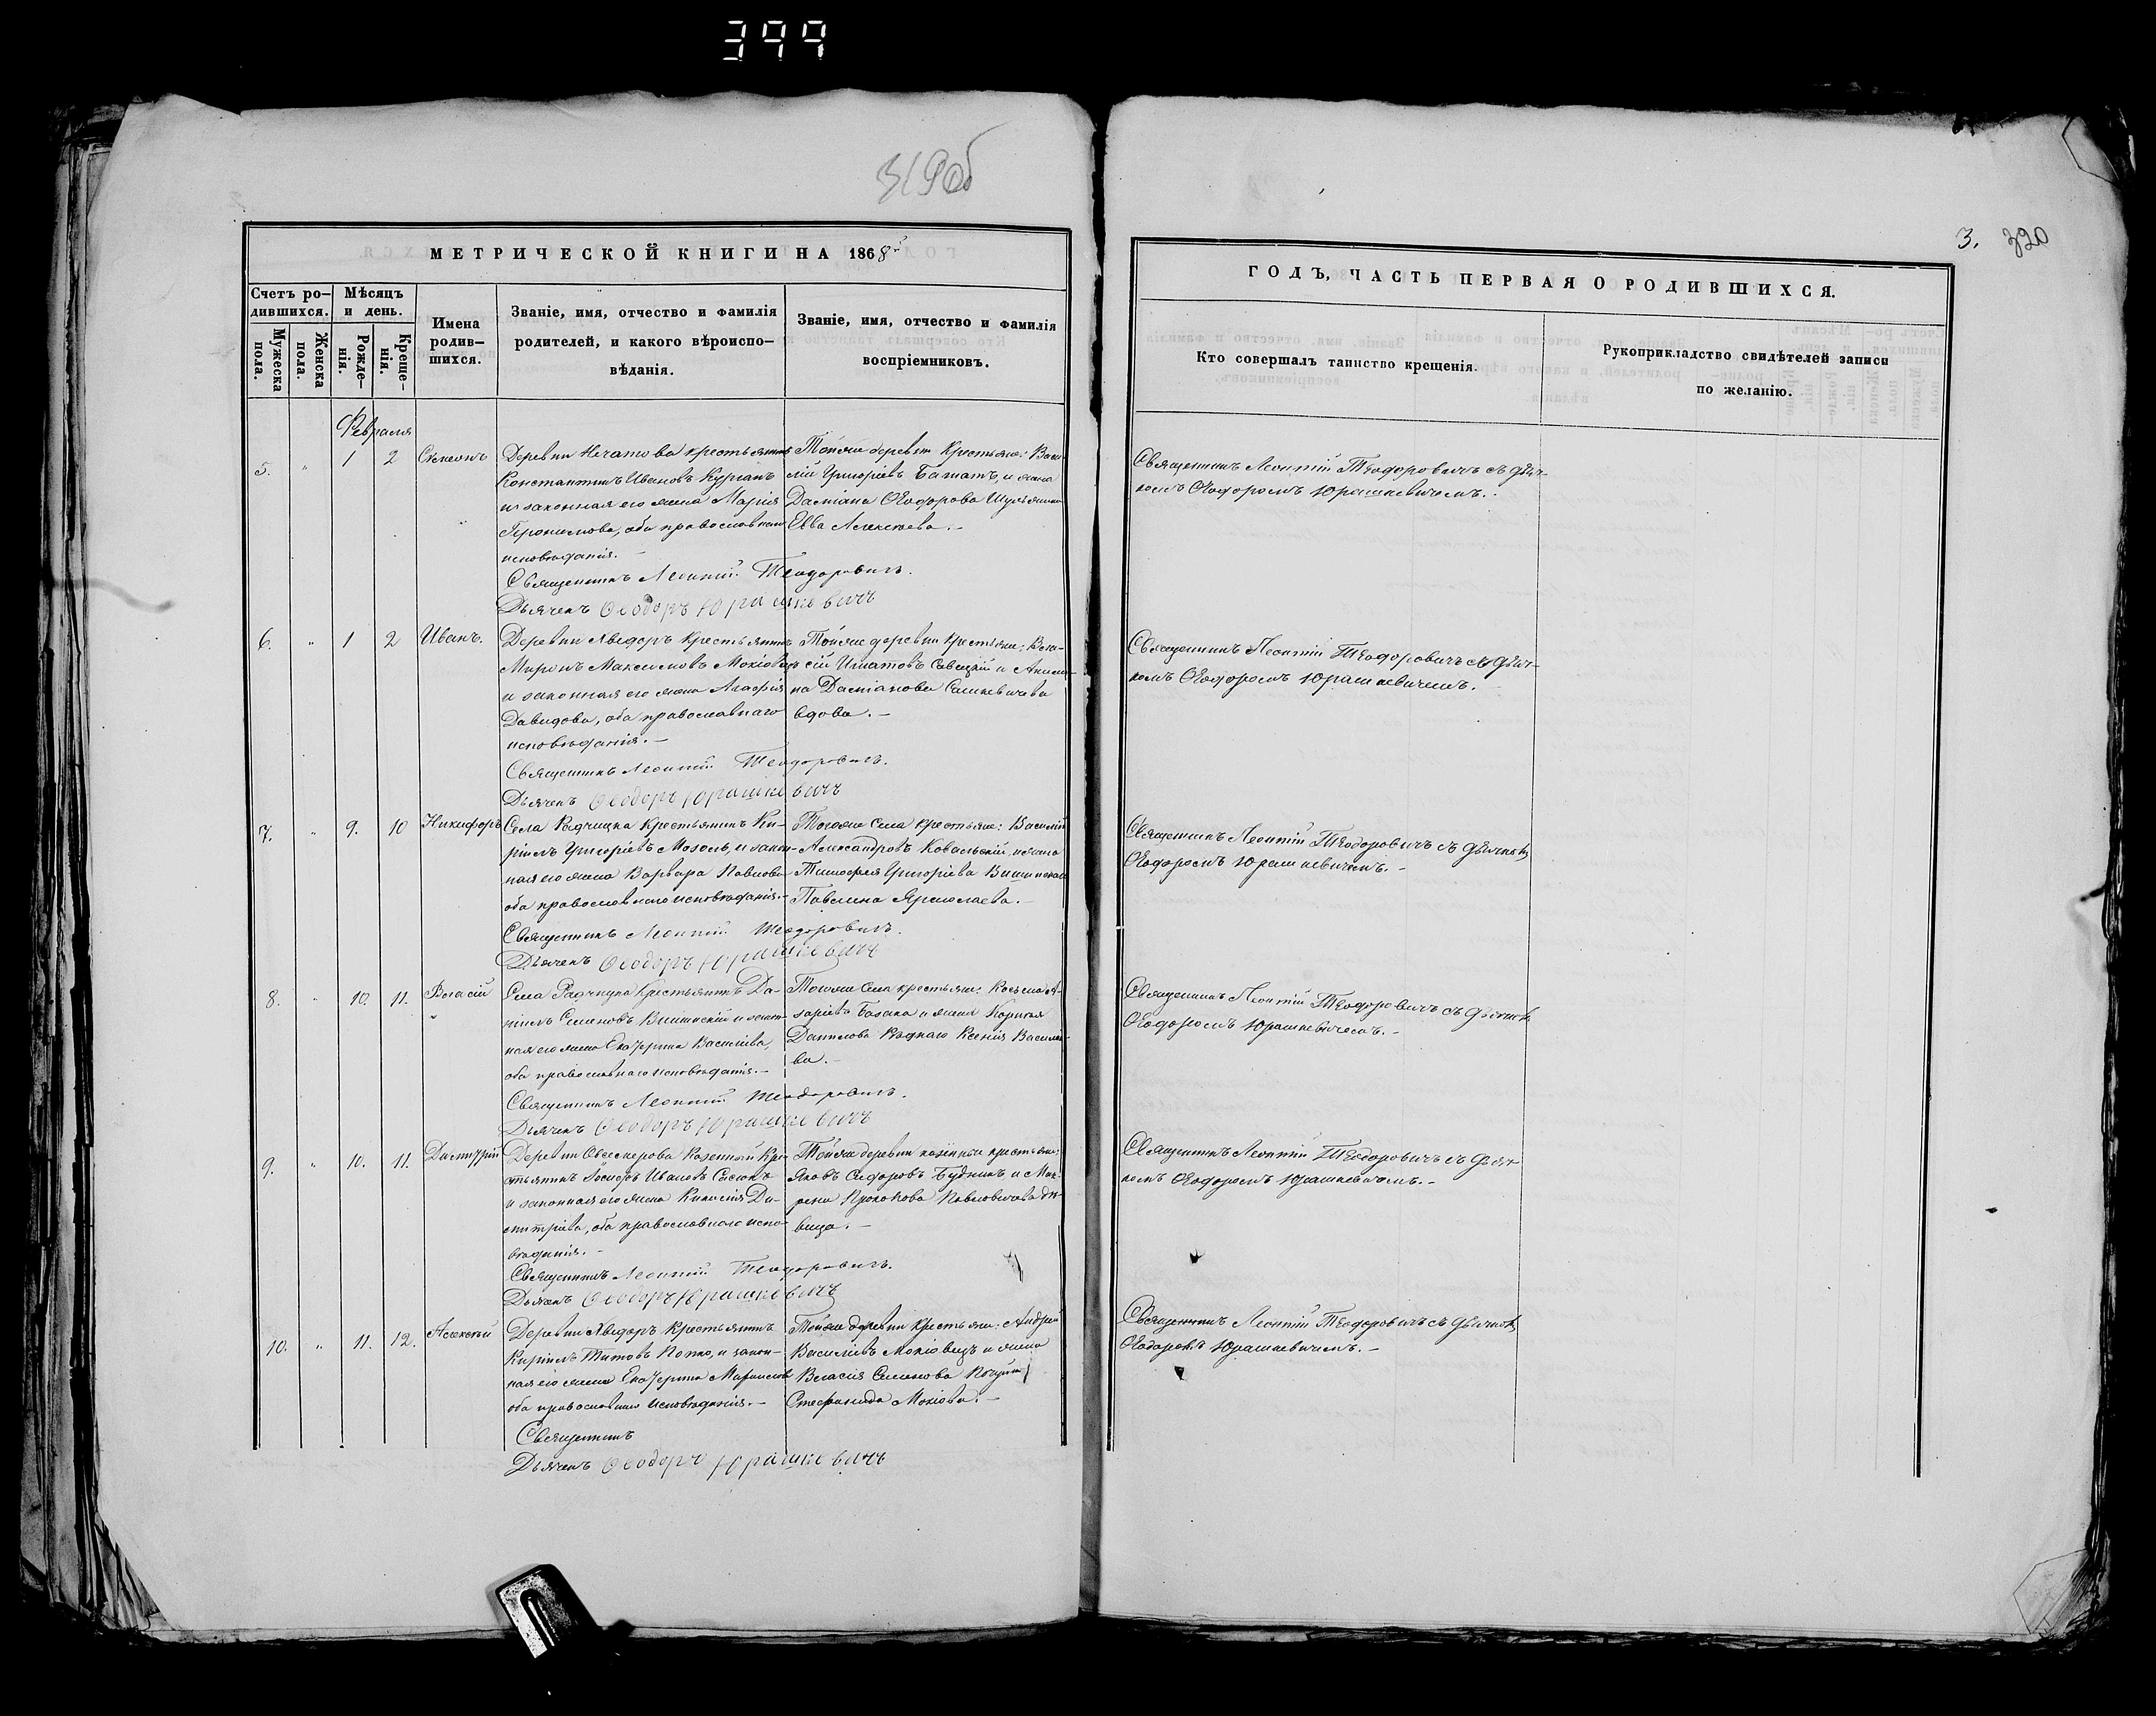 399
319об
МЕТРИЧЕСКОЙ КНИГИ НА 1868й
Счетъ ро-
дившихся.
Мужеска пола.
Женска пола.
Мѣсяцъ
и день.
Рожде-
нія.
Креще-
нія.
Имена
родив-
шихся.
Званіе, имя, отчество и фамилія
родителей, и какого вѣроиспо-
вѣданія.
Званіе, имя, отчество и фамилія
воспріемниковъ.
Февраля
5. " 1 2
Деревни крестьянинъ
Константинъ Ивановъ
и законная его жена Марія
оба православнаго
исповѣданія.-
Священникъ Леонтій Теодоровичъ.
Дьячекъ Ѳеодоръ Юрашкевичъ
Тойже деревни крестьяне: Васи-
лій Григоріевъ и жена
Даміана Ѳеодорова
Евва Алексѣева.-
6. " 1 2 Иванъ.
Деревни Хведоръ крестьянинъ
Миронъ Максимовъ
и законная его жена Агафія
Давидова, оба православнаго
исповѣданія.-
Священникъ Леонтій Теодоровичъ.
Дьячекъ Ѳеодоръ Юрашкевичъ
Тойже деревни крестьяне:
Игнатовъ Савицкій и
на Даміанова
вдова.-
7. " 9. 10 Никифоръ
Села Радчицка крестьянинъ Ки-
рилъ Григоріевъ Мозоль, и закон-
ная его жена Варвара Павлова
оба православнаго исповѣданія.-
Священникъ Леонтій Теодоровичъ.
Дьячекъ Ѳеодоръ Юрашкевичъ
Тогоже села крестьяне: Василій
Александровъ Ковальскій, и жена
Тимофея Григоріева
Павлина Ярмолаева.-
8. " 10. 11. Власій
Села Радчицка крестьянинъ Да-
ніилъ Семеновъ Вишинскій и закон-
ная его жена Екатерина Василіева,
оба православнаго исповѣданія.-
Священникъ Леонтій Теодоровичъ.
Дьячекъ Ѳеодоръ Юрашкевичъ
Тогоже села крестьяне: Козьма
и жена Корнилія
Данилова Ксенія Василіе-
ва.-
9. " 10. 11. Дмитрій
Деревни казенный кре-
стьянинъ Ивановъ
и законная его жена Ди-
митріева, оба православнаго испо-
вѣданія.-
Священникъ Леонтій Теодоровичъ.
Дьячекъ Ѳеодоръ Юрашкевичъ
Тойже деревни казенные крестьяне:
Яковъ Сидоровъ Будникъ и Мак-
рена Прокопова Павловичова дѣ-
вица.-
10. " 11. 12. Алексѣй
Деревни Хведоръ крестьянинъ
Кирилъ Титовъ Попко, и закон-
ная его жена Екатерина
оба православнаго исповѣданія.-
Священникъ
Дьячекъ Ѳеодоръ Юрашкевичъ
Тойже деревни крестьяне: Андрей
Василіевъ и жена
Власія Семенова
Стефанида Мокіова.-
3. 320
ГОДЪ, ЧАСТЬ ПЕРВАЯ О РОДИВШИХСЯ.
Кто совершалъ таинство крещенія.
Рукоприкладство свидѣтелей записи
по желанію.
Священникъ Леонтій Теодоровичъ съ дьяч-
комъ Ѳеодоромъ Юрашкевичемъ.-
Священникъ Леонтій Теодоровичъ съ дьяч-
комъ Ѳеодоромъ Юрашкевичемъ.-
Священникъ Леонтій Теодоровичъ съ дьячкомъ
Ѳеодоромъ Юрашкевичемъ.-
Священникъ Леонтій Теодоровичъ съ дьячкомъ
Ѳеодоромъ Юрашкевичемъ.-
Священникъ Леонтій Теодоровичъ съ дьяч-
комъ Ѳеодоромъ Юрашкевичемъ.-
Священникъ Леонтій Теодоровичъ съ дьячкомъ
Ѳеодоромъ Юрашкевичемъ.-